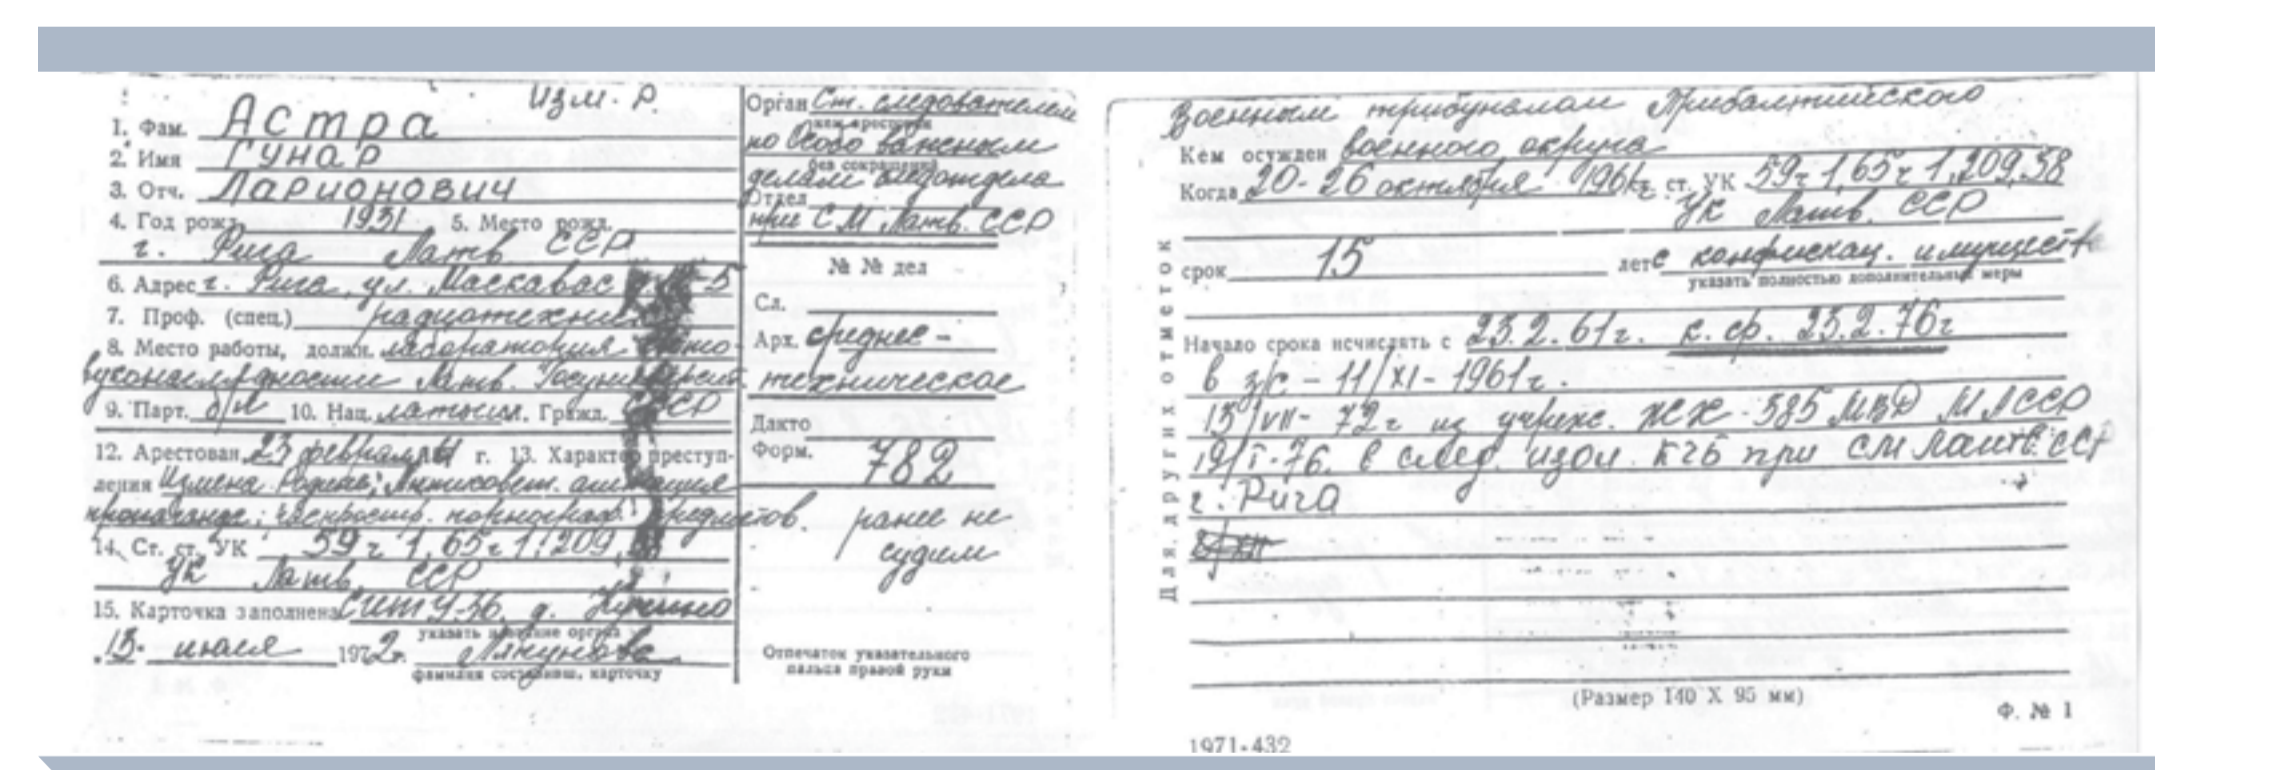 Изм. Р.
1. Фам. Астра
2. Имя Гунар
3. Отч. Ларионович
4. Год рожд. 1931 5. Место рожд.
г. Рига Латв ССР
6. Адрес г. Рига, ул. Маскавас
7. Проф. (спец.) радиотехник
8. Место работы, должн. лаборатория
Латв.
9. Парт. б/п 10. Нац. латыш. Гражд. СССР
12. Арестован 23 февраля 61 г. 13. Характер преступ-
ления Измена Родине; Антисовет. агитация
пропаганда; распростр. порнограф. предметов.
14. Ст. ст. УК 59 ч 1, 65 ч 1, 209,
УК Латв. ССР
15. Карточка заполнена д. Кучино
указать название органа
13. июля 1972 г.
фамилия составивш. карточку
Орган Ст. следователем
кем арестован
по Особо важным
без сокращений
делам следотдела
Отдел
при СМ Латв. ССР
№ № дел
Сл.
Арх. среднее -
техническое
Дакто
Форм. 782
ранее не
судим
Отпечаток указательного
пальца правой руки
Военным трибуналом Прибалтийского
Кем осужден военного округа
Когда 20-26 октября 1961 г. ст. УК 59 ч 1, 65 ч 1, 209, 58
УК Латв. ССР
срок 15 лет с конфискац. имуществ
указать полностью дополнительные меры
Начало срока исчислять с 23.2.61г. к. ср. 23.2.76г
в з/с - 11/XI - 1961г.
13/VII - 72г из учрежс. ЖХ - 385 МВД МАССР
19/I-76. в след. изол. КГБ при СМ Латв. ССР
г. Рига
Для других отметок
(Размер 140 Х 95 мм)
Ф. № 1
1971-432